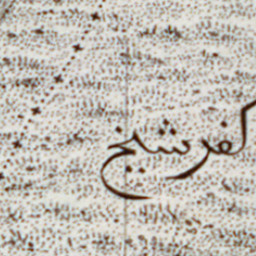 كفر شيخ